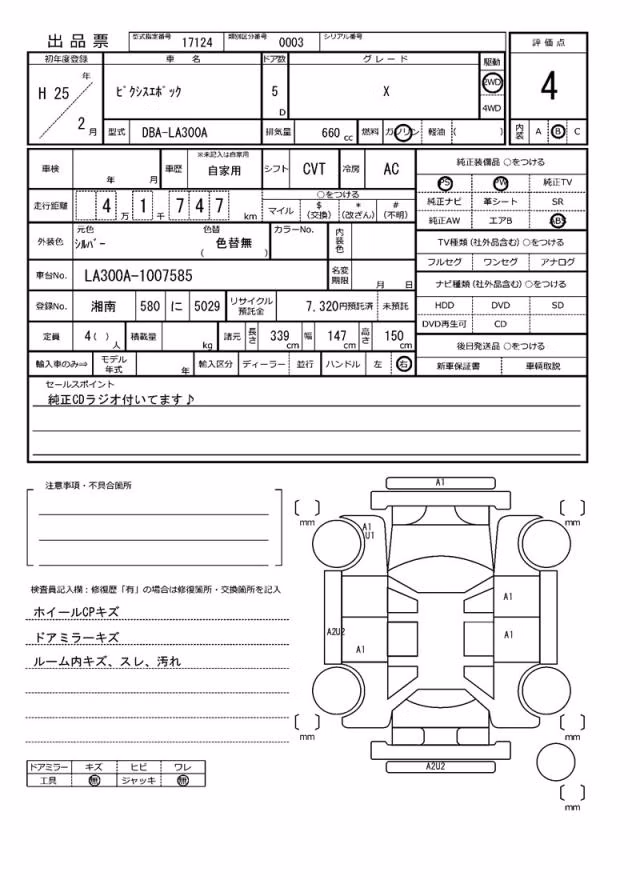 出品票 型式指定番号 17124 類別区分番号 0003 シリアル番号
評価点
4
内装 A B C
初年度登録 車名 ドア数 グレード 駆動
H 25 年 2 月
ﾋﾟｸｼｽｴﾎﾟｯｸ 5 D X 2WD 4WD
型式 DBA-LA300A 排気量 660 cc 燃料 ガソリン 軽油 ( )
車検 年 月 車歴 ※未記入は自家用 自家用 シフト CVT 冷房 AC
走行距離 4 万 1 千 7 4 7 km
○をつける
マイル $ (交換) * (改ざん) # (不明)
外装色 元色 ｼﾙﾊﾞｰ 色替 ( 色替無 ) カラーNo. 内装色
車台No. LA300A-1007585 名変期限 月 日
登録No. 湘南 580 に 5029 リサイクル預託金 7,320円預託済 未預託
定員 4( ) 人 積載量 kg 諸元 長さ 339 cm 幅 147 cm 高さ 150 cm
輸入車のみ⇒ モデル年式 年 輸入区分 ディーラー 並行 ハンドル 左 右
純正装備品 ○をつける
PS PW 純正TV
純正ナビ 革シート SR
純正AW エアB ABS
TV種類 (社外品含む) ○をつける
フルセグ ワンセグ アナログ
ナビ種類 (社外品含む) ○をつける
HDD DVD SD
DVD再生可 CD
後日発送品 ○をつける
新車保証書 車輌取説
セールスポイント
純正CDラジオ付いてます♪
注意事項・不具合箇所
検査員記入欄：修復歴「有」の場合は修復箇所・交換箇所を記入
ホイールCPキズ
ドアミラーキズ
ルーム内キズ、スレ、汚れ
ドアミラー キズ ヒビ ワレ
工具 無 ジャッキ 無
A1
mm
mm
A1
U1
A1
A2U2
A1
A1
mm
mm
A2U2
mm